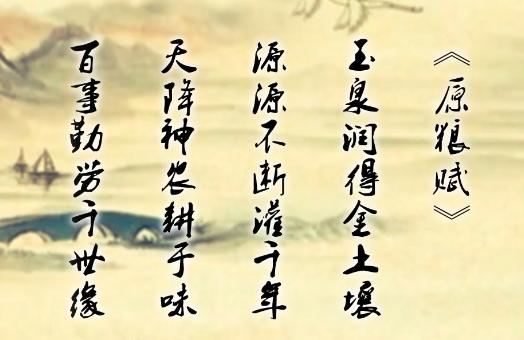 《原粮赋》
玉泉润得金土壤
源源不断灌千年
天降神农耕于味
百事勤劳千世缘